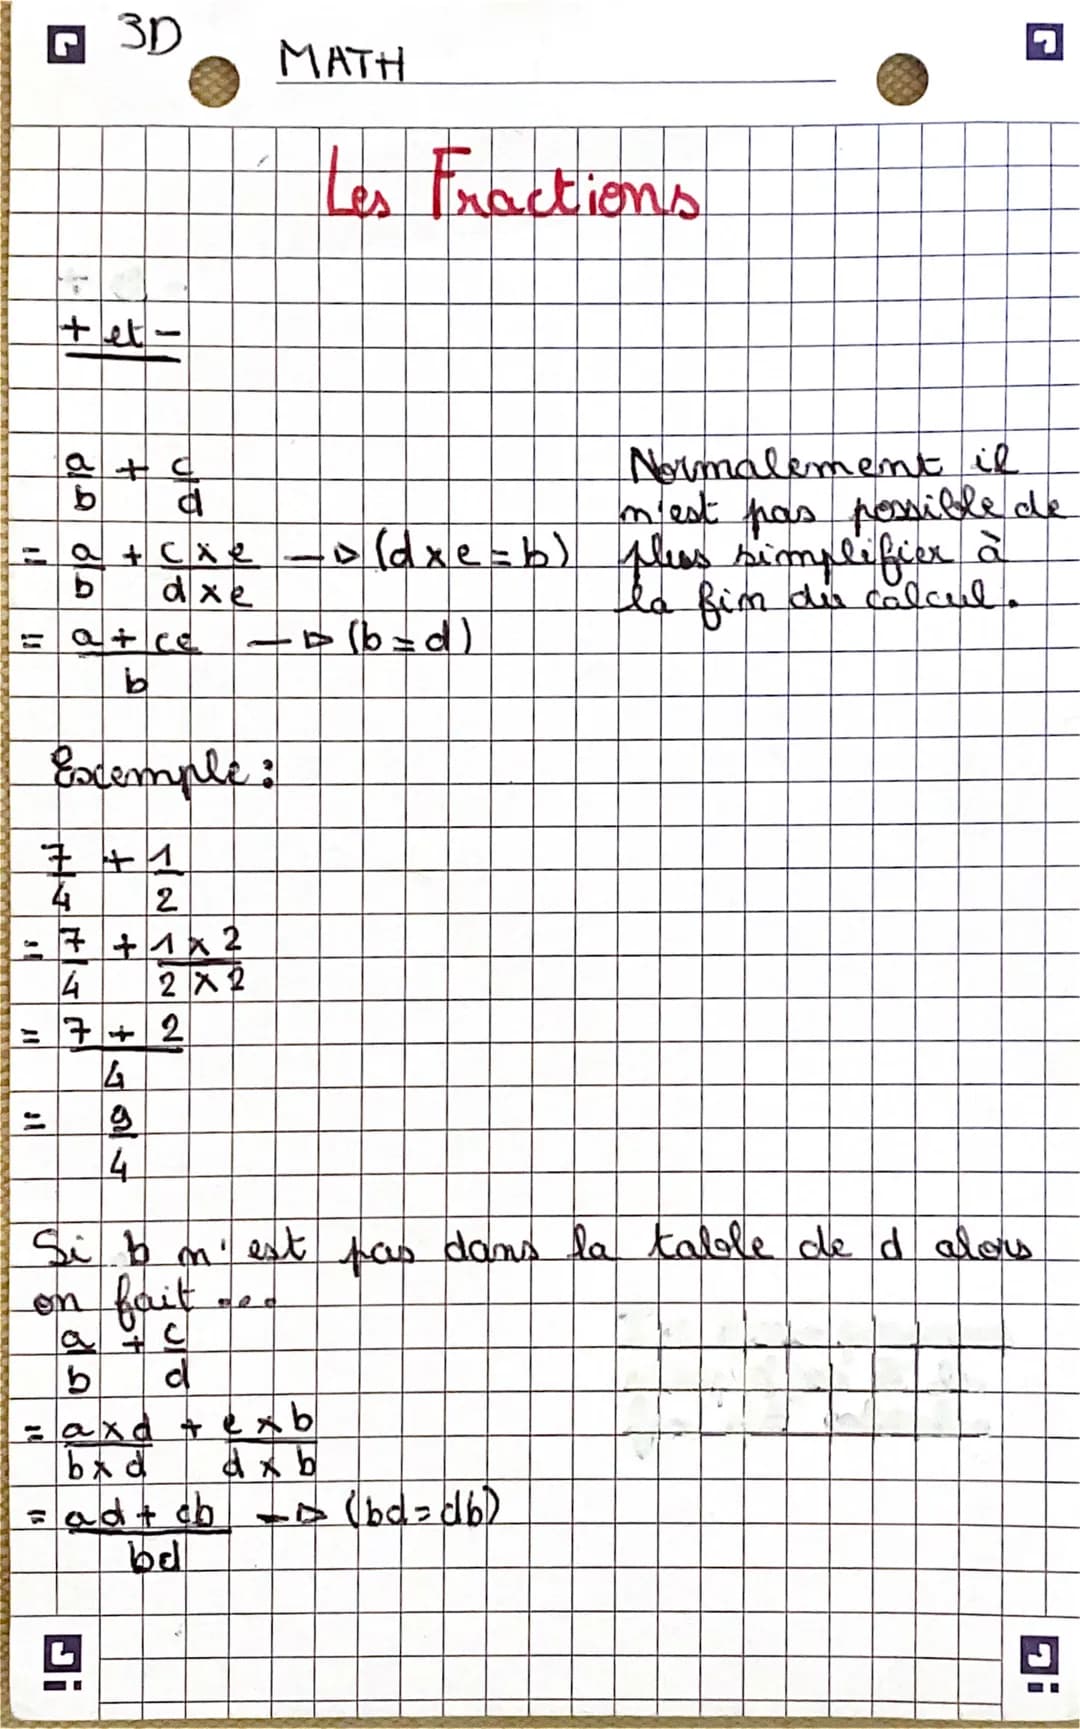 3D
MATH
Les Fractions
+ et -
a/b + c/d
= a/b + c×e/d×e → (d×e=b)
= a+ce/b → (b=d)
Normalement il
n'est pas possible de
plus simplifier à
la fin du calcul.
Exemple :
7/4 + 1/2
= 7/4 + 1×2/2×2
= 7+2/4
= 9/4
Si b n'est pas dans la table de d alors
on fait ...
a/b + c/d
= a×d/b×d + c×b/d×b
= ad+cb/bd → (bd=db)